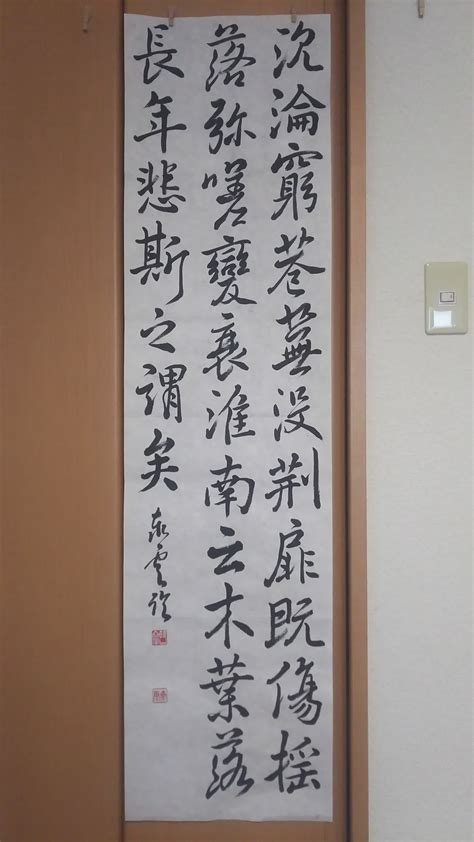 沈淪窮巷蕪没荊扉既傷揺
落弥嗟變衰淮南云木葉落
長年悲斯之謂矣